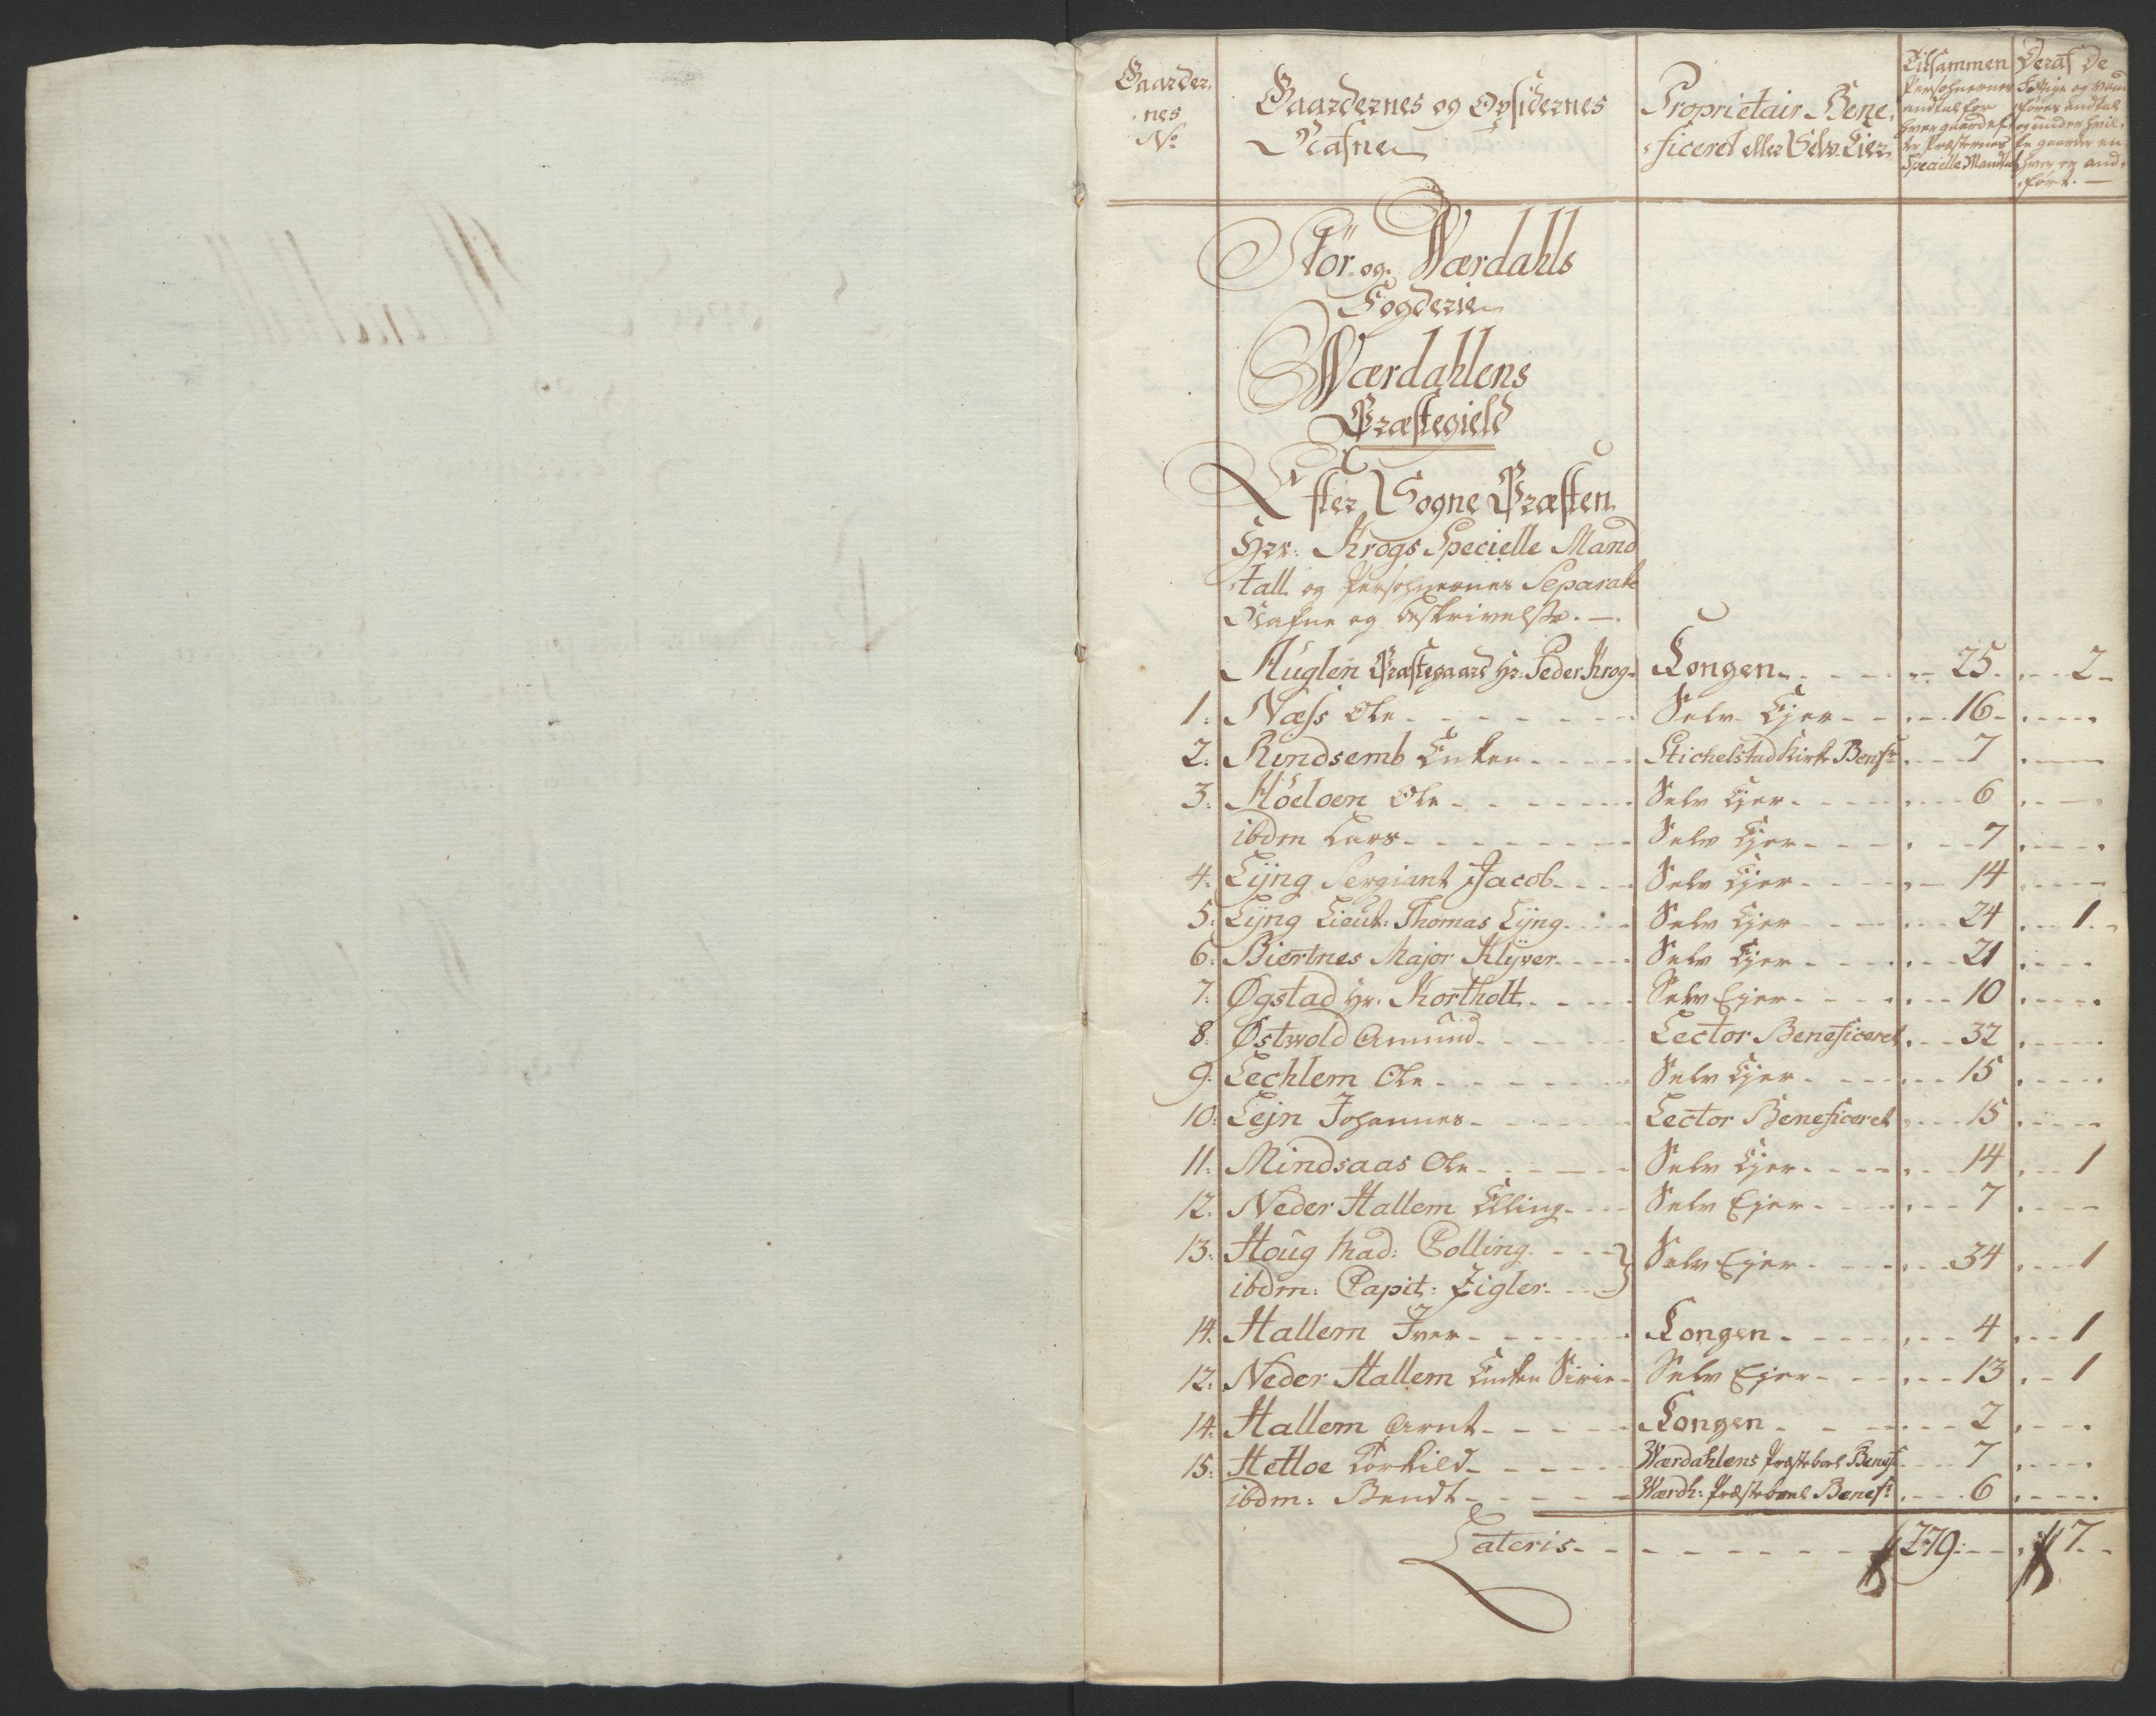 Gaarder,
nes
No
Gaardernes og Opsidernes
Nafne
Proprietair Bene,
ficeret eller Selv. Eier
Tilsammen
Persohnernes
andtal for
hver gaard ef
ter Præsternes
Specielle Mandtal
Deraf De
Fattige og Van
føres andtal
og under hvil,
ke gaarder en
hver er and,
ført. —
Stör og Værdahls
Fogderie
Værdahlens
Præstegield
Efter Sogne Præsten
Hrr: Krogs Specielle Mand
tall og Persohnernes Separate
Nafne og beskrivelse. —
Auglen Præstegaard Hr: Peder Krog - Kongen - 25 - 2 -
1. Næss Ole - Selv Ejer - 16 -
2. Rindsemb Enken - Stichelstad Kirke Benf: - 7 -
3. Höeloen Ole - Selv Ejer - 6 -
ibdm Lars - Selv Ejer - 7 -
4. Lÿng Sergiant Jacob - Selv Ejer - 14 -
5. Lÿng Lieut: Thomas Lÿng - Selv Ejer - 24 - 1 -
6. Biertnes Major Klÿver - Selv Ejer - 21 -
7. Øgstad Hr: Kortholt - Selv Ejer - 10 -
8. Østwold Amund - Lector Beneficeret - 32 -
9. Lechlem Ole - Selv Ejer - 15 -
10. Lejn Johannes - Lector Beneficeret - 15 -
11. Mindsaas Ole - Selv Ejer - 14 - 1
12. Neder Hallem Elling - Selv Ejer - 7 -
13. Houg Mad: Colling - Selv Ejer - 34 - 1
ibdm: Capit: Zigler -
14. Hallem Iver - Kongen - 4 - 1
12. Neder Hallem Enken Siri - Selv Ejer - 13 - 1
14. Hallem Arnt - Kongen - 2 -
15. Hetloe Torkild - Værdahlens Præstebord Benef: - 7 -
ibdm: Bendt - Værdh: Præstebord Benef: - 6 -
Lateris - 279 - 7 -